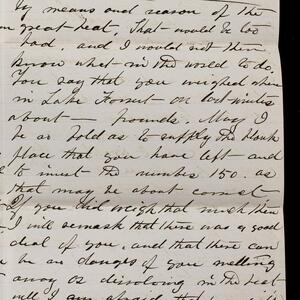 by means and reason of the
great heat. That would be too
bad, and I would not then
know what in the world to do.
You say that you weighed when
in Lake Forest on last winter
about — pounds. May I
be so bold as to supply the blank
place that you have left and
to insert the number 150. as
that may be about correct
If you did weigh that much then
I will remark that there was a good
deal of you, and that there can
be no danger of you melting
away or dissolving in the heat
well I am afraid that